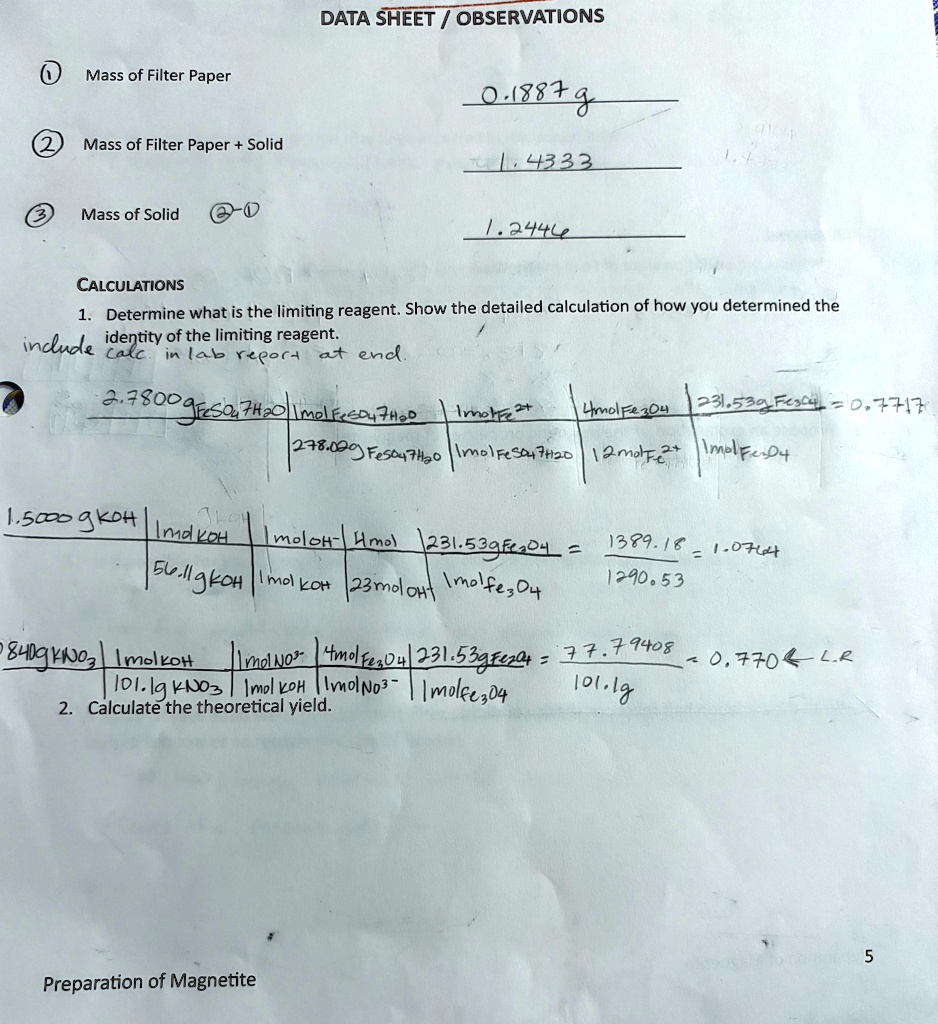 DATA SHEET / OBSERVATIONS
① Mass of Filter Paper 0.1887 g
② Mass of Filter Paper + Solid 1.4333
③ Mass of Solid ②-① 1.2446
CALCULATIONS
1. Determine what is the limiting reagent. Show the detailed calculation of how you determined the
identity of the limiting reagent.
include calc. in lab report at end.
2.7800 g FeSO4 7H2O | 1mol FeSO4 7H2O | 1mol Fe2+ | 4mol Fe3O4 | 231.53g Fe3O4 = 0.7717
278.02g FeSO4 7H2O | 1mol FeSO4 7H2O | 12 mol Fe2+ | 1mol Fe3O4
1.5000 g KOH | 1mol KOH | 1mol OH- | 4mol | 231.53g Fe3O4 = 1389.18 = 1.0764
56.11g KOH | 1mol KOH | 23mol OH- | 1mol Fe3O4 1290.53
840g KNO3 | 1mol KOH | 1mol NO3- | 4mol Fe3O4 | 231.53g Fe3O4 = 77.79408 = 0.770 ← L.R
101.1g KNO3 | 1mol KOH | 1mol NO3- | 1mol Fe3O4 101.1g
2. Calculate the theoretical yield.
5
Preparation of Magnetite